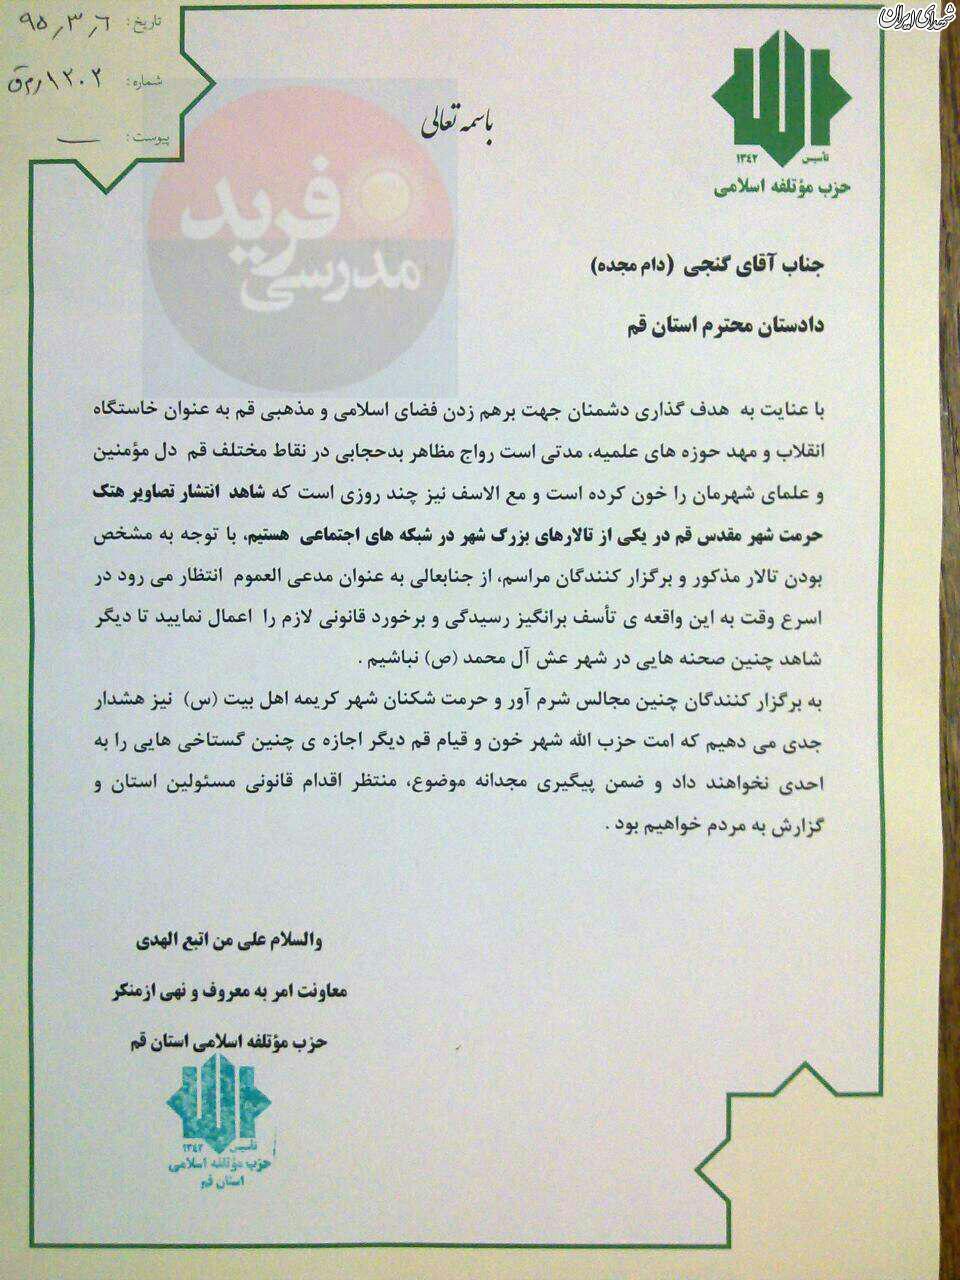 شهدای ایران
تاریخ: ۹۵٫۳٫۶
شماره: ۱۲۰۲٫م ق
پیوست: ــ
باسمه تعالی
تأسیس ۱۳۴۲
حزب مؤتلفه اسلامی
فرید
مدرسی
جناب آقای گنجی (دام مجده)
دادستان محترم استان قم
با عنایت به هدف گذاری دشمنان جهت برهم زدن فضای اسلامی و مذهبی قم به عنوان خاستگاه
انقلاب و مهد حوزه های علمیه، مدتی است رواج مظاهر بدحجابی در نقاط مختلف قم دل مؤمنین
و علمای شهرمان را خون کرده است و مع الاسف نیز چند روزی است که شاهد انتشار تصاویر هتک
حرمت شهر مقدس قم در یکی از تالارهای بزرگ شهر در شبکه های اجتماعی هستیم، با توجه به مشخص
بودن تالار مذکور و برگزار کنندگان مراسم، از جنابعالی به عنوان مدعی العموم انتظار می رود در
اسرع وقت به این واقعه ی تأسف برانگیز رسیدگی و برخورد قانونی لازم را اعمال نمایید تا دیگر
شاهد چنین صحنه هایی در شهر عش آل محمد (ص) نباشیم .
به برگزار کنندگان چنین مجالس شرم آور و حرمت شکنان شهر کریمه اهل بیت (س) نیز هشدار
جدی می دهیم که امت حزب الله شهر خون و قیام قم دیگر اجازه ی چنین گستاخی هایی را به
احدی نخواهند داد و ضمن پیگیری مجدانه موضوع، منتظر اقدام قانونی مسئولین استان و
گزارش به مردم خواهیم بود .
والسلام علی من اتبع الهدی
معاونت امر به معروف و نهی ازمنکر
حزب مؤتلفه اسلامی استان قم
تأسیس ۱۳۴۲
حزب مؤتلفه اسلامی
استان قم